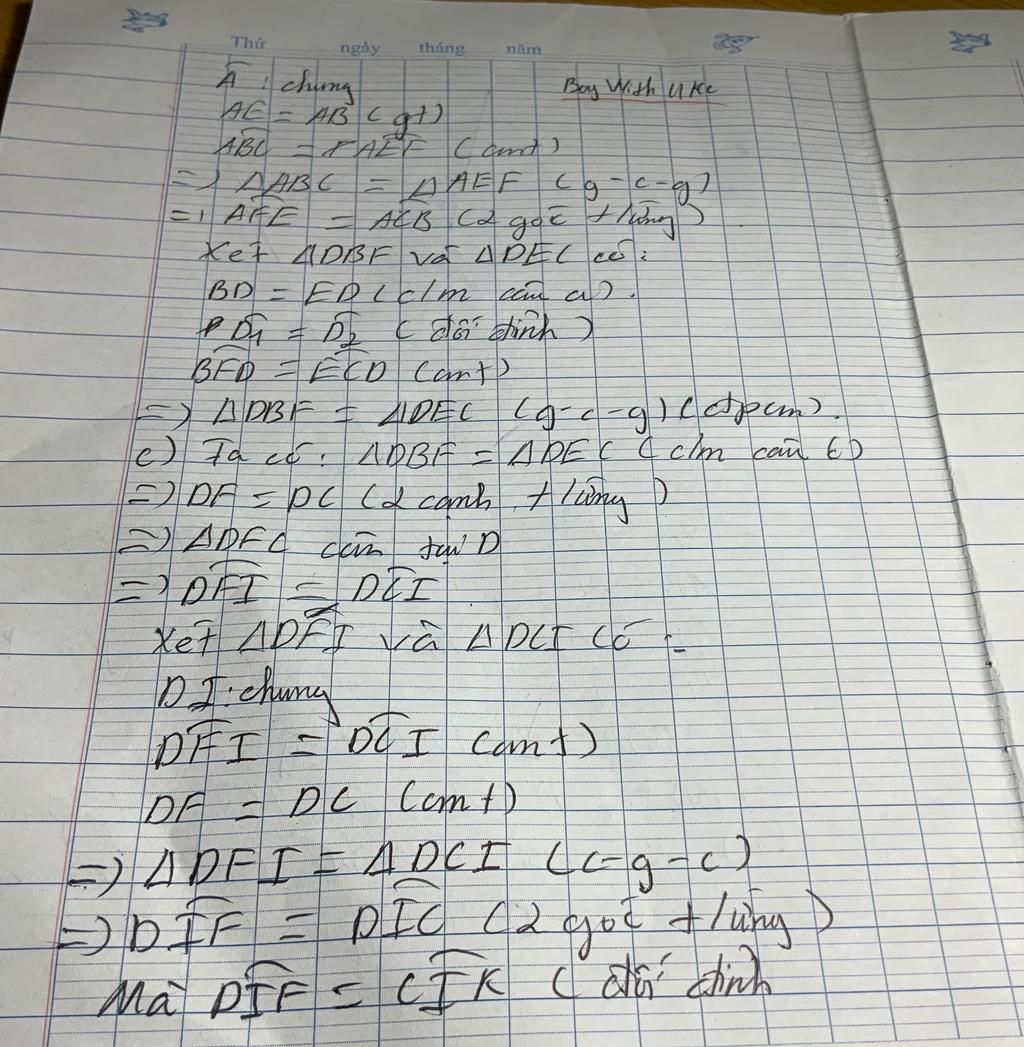 Thứ ngày tháng năm
Â : chung Boy With Uke
AE = AB (gt)
ABC = AEF (cmt)
=> ΔABC = ΔAEF (g-c-g)
=> AFE = ACB (2 góc t/ứng)
Xét ΔDBF và ΔDEC có:
BD = ED (c/m câu a).
D1 = D2 (đối đỉnh)
BFD = ECD (cmt)
=> ΔDBF = ΔDEC (g-c-g) (đpcm).
c) Ta có: ΔDBF = ΔDEC (c/m câu b)
=> DF = DC (2 cạnh t/ứng)
=> ΔDFC cân tại D
=> DFI = DCI
Xét ΔDFI và ΔDCI có:
DI: chung
DFI = DCI (cmt)
DF = DC (cmt)
=> ΔDFI = ΔDCI (c-g-c)
=> DIF = DIC (2 góc t/ứng)
Mà DIF = CIK (đối đỉnh